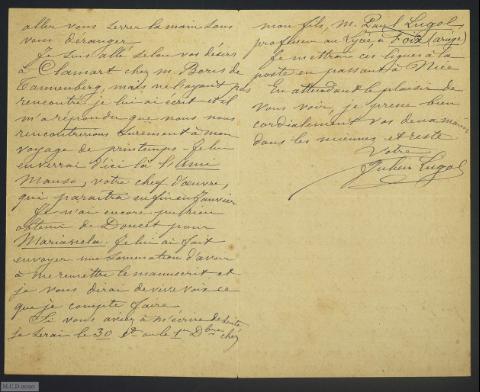 aller vous serrer la main sans
vous déranger.
Je suis allé selon vos désirs
à Clamart chez M. Boris de
Tannenberg, mais ne l'ayant pas
rencontré je lui ai écrit et il
m'a répondu que nous nous
rencontrerions surement à mon
voyage de printemps. Je lui
enverrai d'ici là l'Ami
Manso, votre chef d'œuvre,
qui paraîtra enfin en Janvier
Je n'ai encore pu rien
obtenir de Doucet pour
Marianela. Je lui ai fait
envoyer une sommation d'avoir
à me remettre le manuscrit et
je vous dirai de vive voix ce
que je compte faire.
Si vous aviez à m'écrire de suite
je serai le 30 et ou le 1er Dbre chez
mon fils, M. Paul Lugol,
professeur au Lycée, à Foix (ariège)
Je mettrai ces lignes à la
poste en passant à Nice
En attendant le plaisir de
vous voir, je presse bien
cordialement vos deux mains
dans les miennes et reste
Votre
Julien Lugol
M.C.D